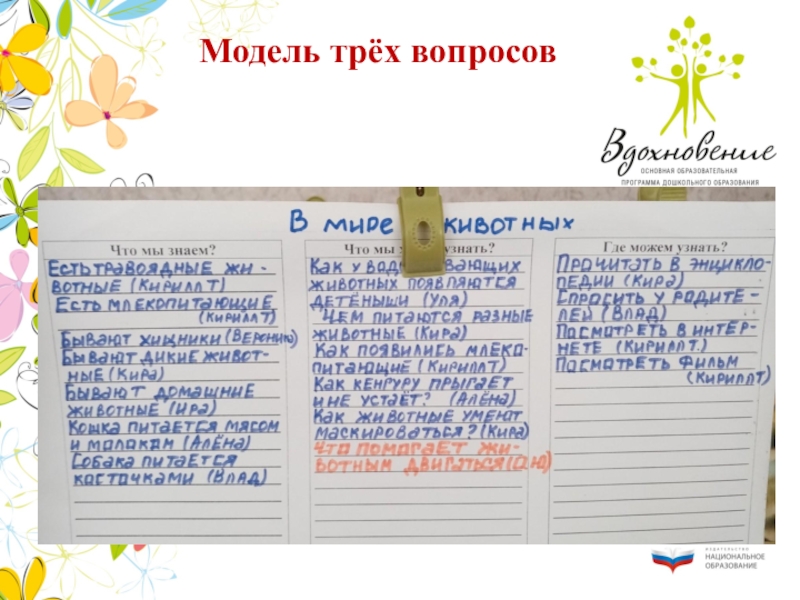 Модель трёх вопросов
Вдохновение
ОСНОВНАЯ ОБРАЗОВАТЕЛЬНАЯ
ПРОГРАММА ДОШКОЛЬНОГО ОБРАЗОВАНИЯ
В мире животных
Что мы знаем?
Есть травоядные жи-
вотные (Кирилл Т)
Есть млекопитающие
(Кирилл Т)
Бывают хищники (Вероника)
Бывают дикие живот-
ные (Кира)
Бывают домашние
животные (Ира)
Кошка питается мясом
и молоком (Алёна)
Собака питается
косточками (Влад)
Что мы узнать?
Как у
животных появляются
детёныши (Уля)
Чем питаются разные
животные (Кира)
Как появились млеко-
питающие (Кирилл Т)
Как кенгуру прыгает
и не устаёт? (Алёна)
Как животные умеют
маскироваться? (Кира)
Что помогает жи-
вотным двигаться
Где можем узнать?
Прочитать в энцикло-
педии (Кира)
Спросить у родите-
лей (Влад)
Посмотреть в интер-
нете (Кирилл Т.)
Посмотреть фильм
(Кирилл Т)
ИЗДАТЕЛЬСТВО
НАЦИОНАЛЬНОЕ
ОБРАЗОВАНИЕ